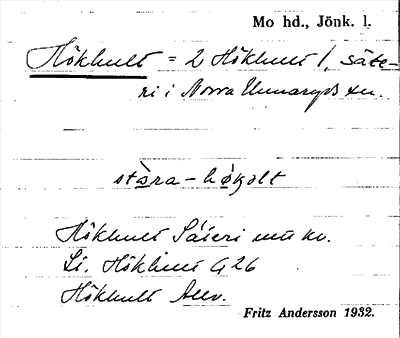 Mo hd., Jönk. l.
Hökhult = 2 Hökhult 1, säte-
ri i Norra Unnaryds sn.
stòra - hökolt
Hökhult Säteri mu kv.
Li. Hökhult G 26
Hökhult Aev.
Fritz Andersson 1932.